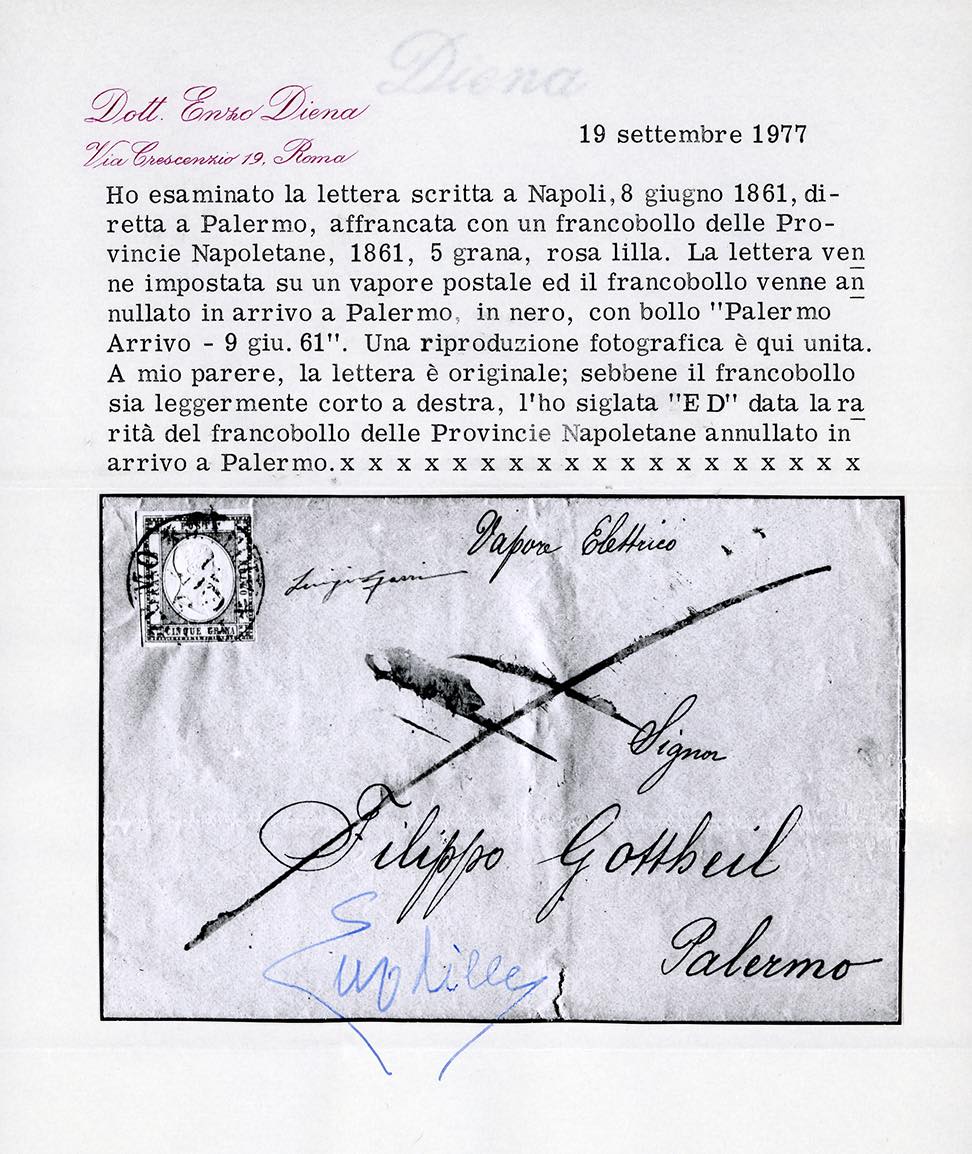 Diena
Dott. Enzo Diena
Via Crescenzio 19, Roma
19 settembre 1977
Ho esaminato la lettera scritta a Napoli, 8 giugno 1861, di-
retta a Palermo, affrancata con un francobollo delle Pro-
vincie Napoletane, 1861, 5 grana, rosa lilla. La lettera ven
ne impostata su un vapore postale ed il francobollo venne an
nullato in arrivo a Palermo, in nero, con bollo "Palermo
Arrivo - 9 giu. 61". Una riproduzione fotografica è qui unita.
A mio parere, la lettera è originale; sebbene il francobollo
sia leggermente corto a destra, l'ho siglata "E D" data la ra
rità del francobollo delle Provincie Napoletane annullato in
arrivo a Palermo. x x x x x x x x x x x x x x x x x x x
Vapore Elettrico
CINQUE GRANA
Signor
Filippo Gottheil
Palermo